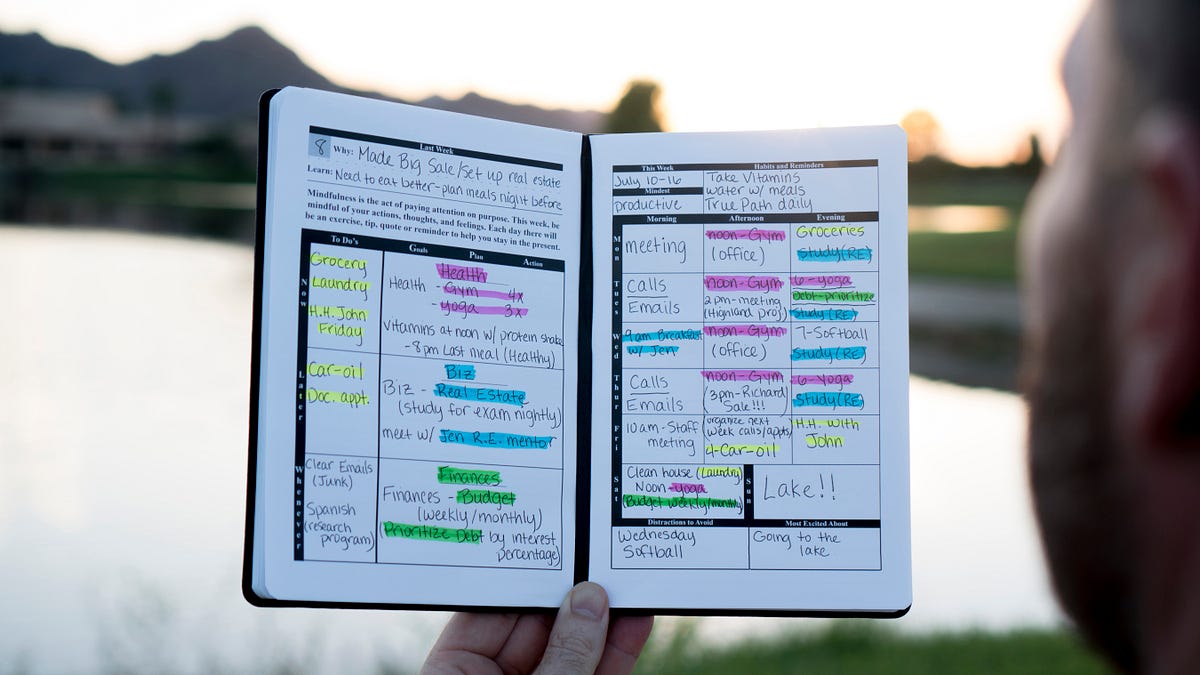 Last Week
8 Why: Made Big Sale/set up real estate
Learn: Need to eat better-plan meals night before
Mindfulness is the act of paying attention on purpose. This week, be
mindful of your actions, thoughts, and feelings. Each day there will
be an exercise, tip, quote or reminder to help you stay in the present.
To Do's
Goals Plan Action
Now
Grocery
Laundry
H.H. John
Friday
Later
Car-oil
Doc. appt.
Whenever
Clear Emails
(Junk)
Spanish
(research
program)
Health
Health - Gym 4x
- yoga 3x
vitamins at noon w/ protein shake
-8pm Last meal (Healthy)
Biz
Biz - Real Estate
(study for exam nightly)
meet w/ Jen R.E. mentor
Finances
Finances - Budget
(weekly/monthly)
Prioritize Debt by interest
percentage)
This Week
July 10-16
Mindest
productive
Habits and Reminders
Take Vitamins
water w/ meals
True Path daily
Morning Afternoon Evening
Mon
meeting
noon-Gym
(office)
Groceries
Study(RE)
Tues
Calls
Emails
noon-Gym
2pm-meeting
(Highland proj)
6-yoga
Debt-prioritize
Study (RE)
Wed
9am Breakfast
w/ Jen
noon-Gym
(office)
7-Softball
Study(RE)
Thur
Calls
Emails
noon-Gym
(3pm-Richard)
Sale!!!
6-Yoga
Study(RE)
Fri
10am-Staff
meeting
(organize next
week calls/appts)
4-Car-oil
H.H. with
John
Sat
Clean house (Laundry)
Noon-yoga
(Budget weekly/monthly)
Sun
Lake!!
Distractions to Avoid
Wednesday
Softball
Most Excited About
Going to the
lake